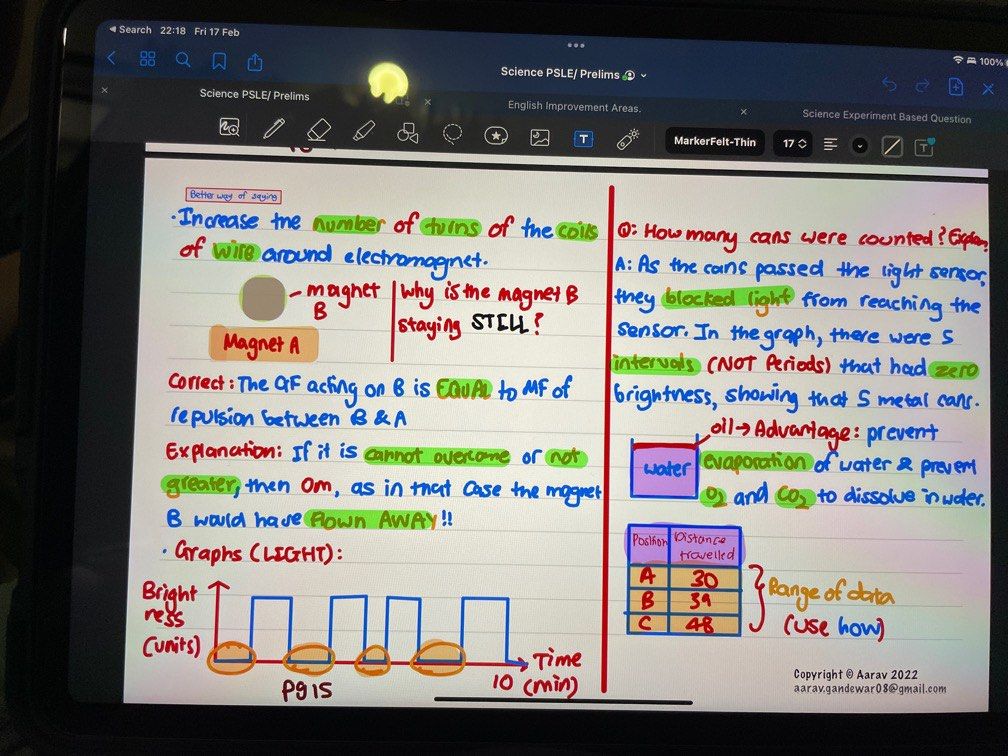 Search 22:18 Fri 17 Feb
100%
Science PSLE/ Prelims
Science PSLE/ Prelims
English Improvement Areas.
Science Experiment Based Question
MarkerFelt-Thin 17
Better way of saying
· Increase the number of turns of the coils
of wire around electromagnet.
magnet
B
Magnet A
Why is the magnet B
staying STILL?
Correct: The GF acting on B is EQUAL to MF of
repulsion between B & A
Explanation: If it is cannot overcome or not
greater, then 0m, as in that case the magnet
B would have flown AWAY!!
· Graphs (LIGHT):
Bright
ness
(units)
Time
10 (min)
Pg 15
Q: How many cans were counted? Explain
A: As the cans passed the light sensor,
they blocked light from reaching the
sensor. In the graph, there were 5
intervals (NOT Periods) that had zero
brightness, showing that 5 metal cans.
oil→Advantage: prevent
water
evaporation of water & prevent
O2 and CO2 to dissolve in water.
Position Distance travelled
A 30
B 39
C 48
Range of data
(use how)
Copyright © Aarav 2022
aarav.gandewar08@gmail.com